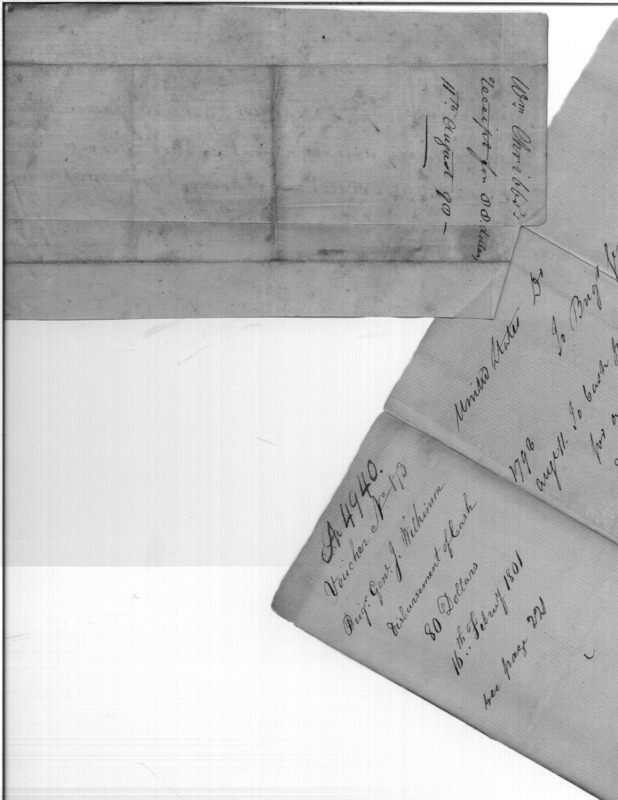 Wm
Receipt for 80 Dollars
11th August 90 —
United States Dr
To Brigr
1796
augt 11. To Cash
for
A 4940.
Voucher No 173
Brigr Genl J. Wilkinson
disbursement of Cash
80 Dollars
16th Febru'y 1801
see page 221